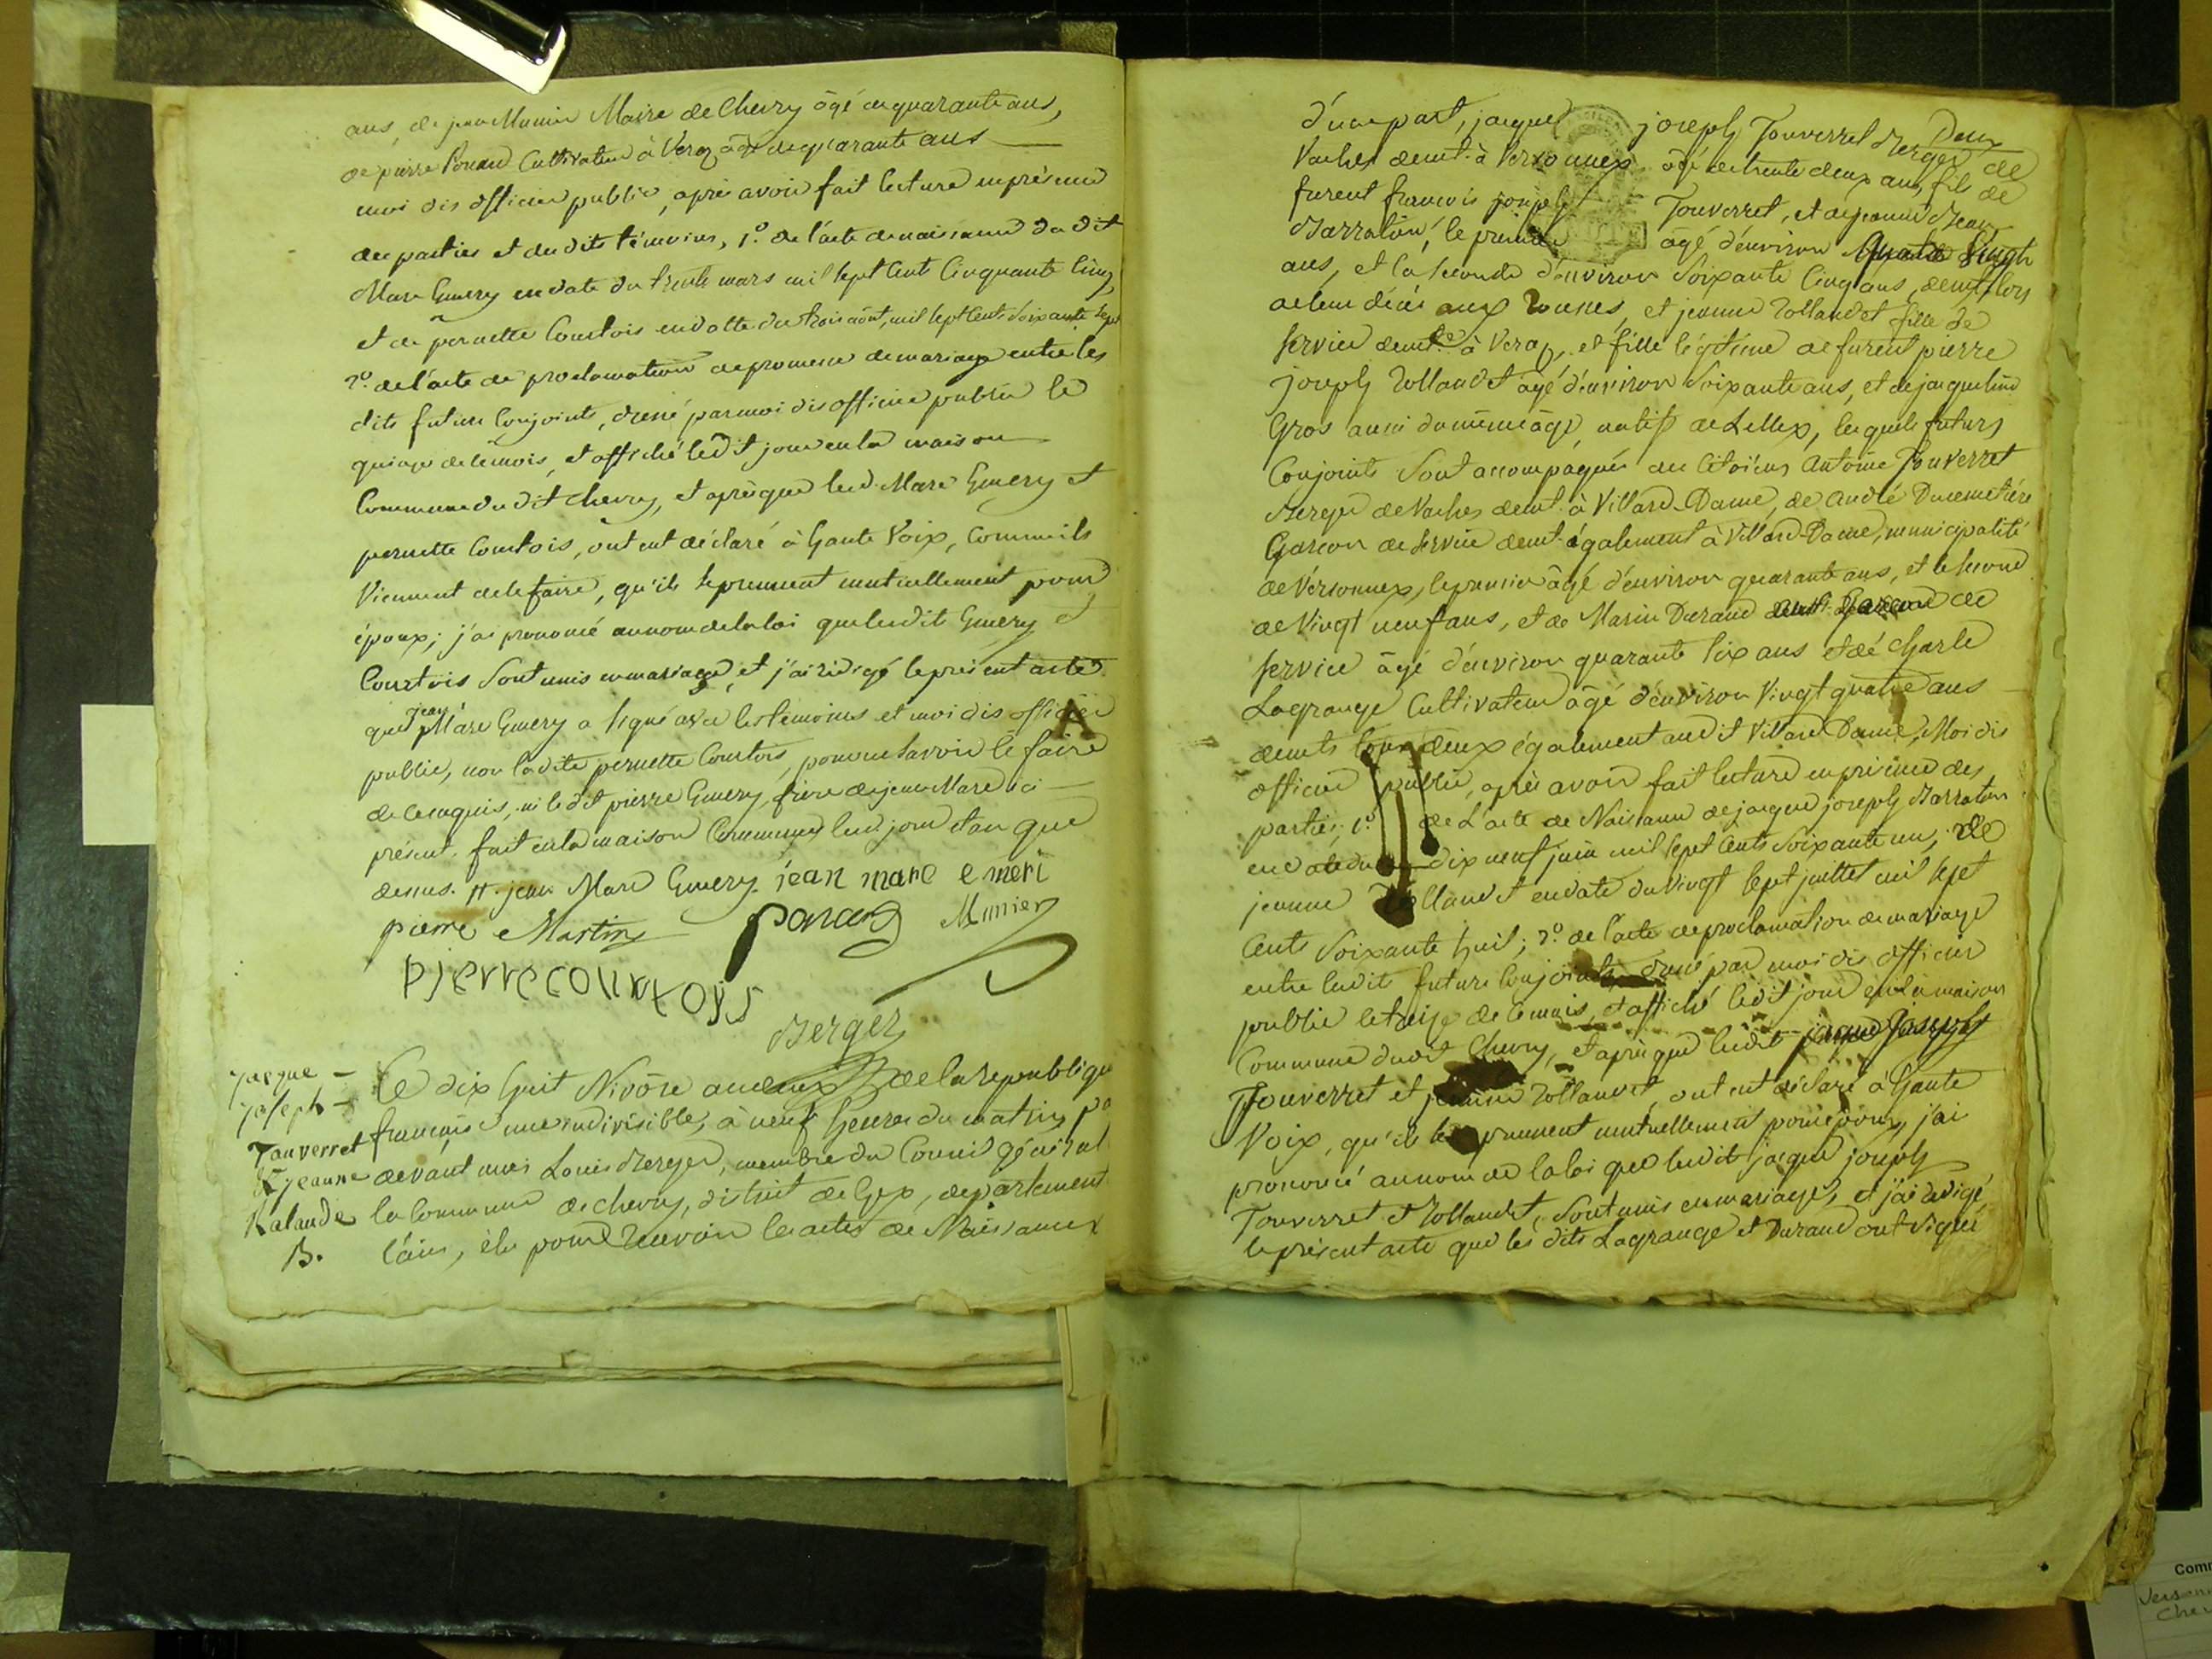 ans, de jean Munier Maire de Chevry âgé de quarante ans,
de pierre Cultivateur à Veraz âgé de quarante ans
moi dis officier public, après avoir fait lecture en présence
des parties et des dits témoins, 1.º de l'acte de naissance du dit
Marc Emery en date du trente mars mil sept cents cinquante cinq,
et de pernette Courtois en datte du trois août, mil sept cents soixante sept
2º. de l'acte de proclamation de promesse de mariage entre les
dits futurs conjoints, dressé par moi dis officier public le
quinze de ce mois, et affiché ledit jour en la maison
Commune du dit chevry, et après que led. Marc Emery et
pernette Courtois, ont eut déclaré à haute voix, comme ils
viennent de le faire, qu'ils se prennent mutuellement pour
époux; j'ai prononcé au nom de la loi que lesdits Emery et
Courtois sont unis en mariage, et j'ai rédigé le présent acte
que jean Marc Emery a signé avec les témoins et moi dis officier
public, non la dite pernette Courtois, pour ne savoir le faire
de ce enquis, ni le dit pierre Emery, frère de jean Marc ici
présent. fait en la maison Commune led. jour et an que
dessus. jean Marc Emery. jéan marc emeri
pierre Martin panaz Munier
Pierre courtois
Berger
Jacque
joseph
Touverret
& jeanne
Ralande
B.
Ce dix huit Nivôse an deux de la republique
française une indivisible, à neuf heures du matin, pa
devant moi Louis Berger, membre du Conseil général
la Commune de chevry, district de Gex, departement
l'ain, élu pour recevoir les actes de Naissances
A
Deux
d'une part, jacque joseph Touverret Berger de
Vaches demt. à Versonnex âgé de trente deux ans, fils de
furent françois joseph Touverret, et de jeanne
Barraton, le premier âgé d'environ Vingt
ans, et la seconde d'environ soixante cinq ans, demt. lors
de leur décès aux Rousses, et jeanne Rollandet fille de
service demte. à Veraz, et fille légitime de furent pierre
joseph Rollandet âgé d'environ soixante ans, et de jacqueline
Gros aussi du même âge, natifs de Lellex, lesquels futurs
Conjoints sont accompagnés des Citoiens Antoine Touverret
Berger de Vaches demt. à Villard-Dame, de André Ducemetière
Garcon de service demt. également à Villard-Dame, municipalité
de Versonnex, le premier âgé d'environ quarante ans, et le second
de Vingt neuf ans, et de Marin Durand Garcon de
service âgé d'environ quarante six ans et de Charle
Lagrange Cultivateur âgé d'environ Vingt quatre ans
demts. tous deux également audit Villard Dame, Moi dis
officier public, après avoir fait lecture en présence des
parties, 1º. de l'acte de Naissance de jacque joseph Barraton
en date du dix neuf juin mil sept cents soixante un, de
jeanne Rollandet en date du vingt sept juillet mil sept
cents soixante huit; 2º. de l'acte de proclamation de mariage
entre lesdits futurs conjoints dressé par moi dis officier
public le treize de ce mois, et affiché ledit jour en la maison
Commune dudit Chevry, et après que ledit jacque joseph
Touverret et jeanne Rollandet, ont eut déclaré à haute
Voix, qu'ils se prennent mutuellement pour époux, j'ai
prononcé au nom de la loi que ledit jacque joseph
Touverret et Rollandet, sont unis en mariage, et j'ai rédigé
le présent acte que les dits Lagrange et Durand ont signé